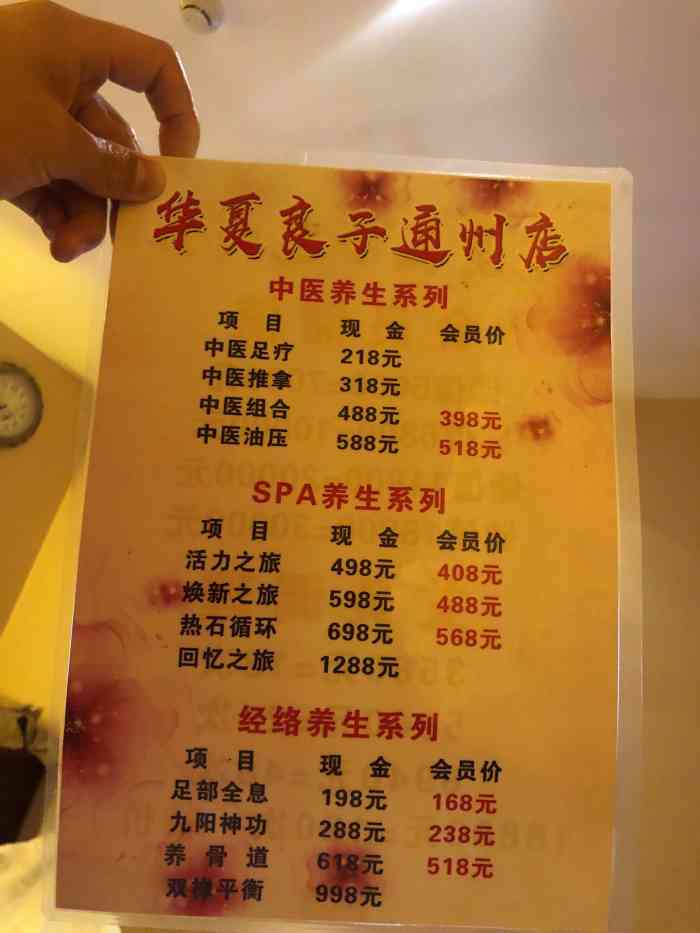 华夏良子通州店
中医养生系列
项 目 现 金 会员价
中医足疗 218元
中医推拿 318元
中医组合 488元 398元
中医油压 588元 518元
SPA养生系列
项 目 现 金 会员价
活力之旅 498元 408元
焕新之旅 598元 488元
热石循环 698元 568元
回忆之旅 1288元
经络养生系列
项 目 现 金 会员价
足部全息 198元 168元
九阳神功 288元 238元
养 骨 道 618元 518元
双禄平衡 998元